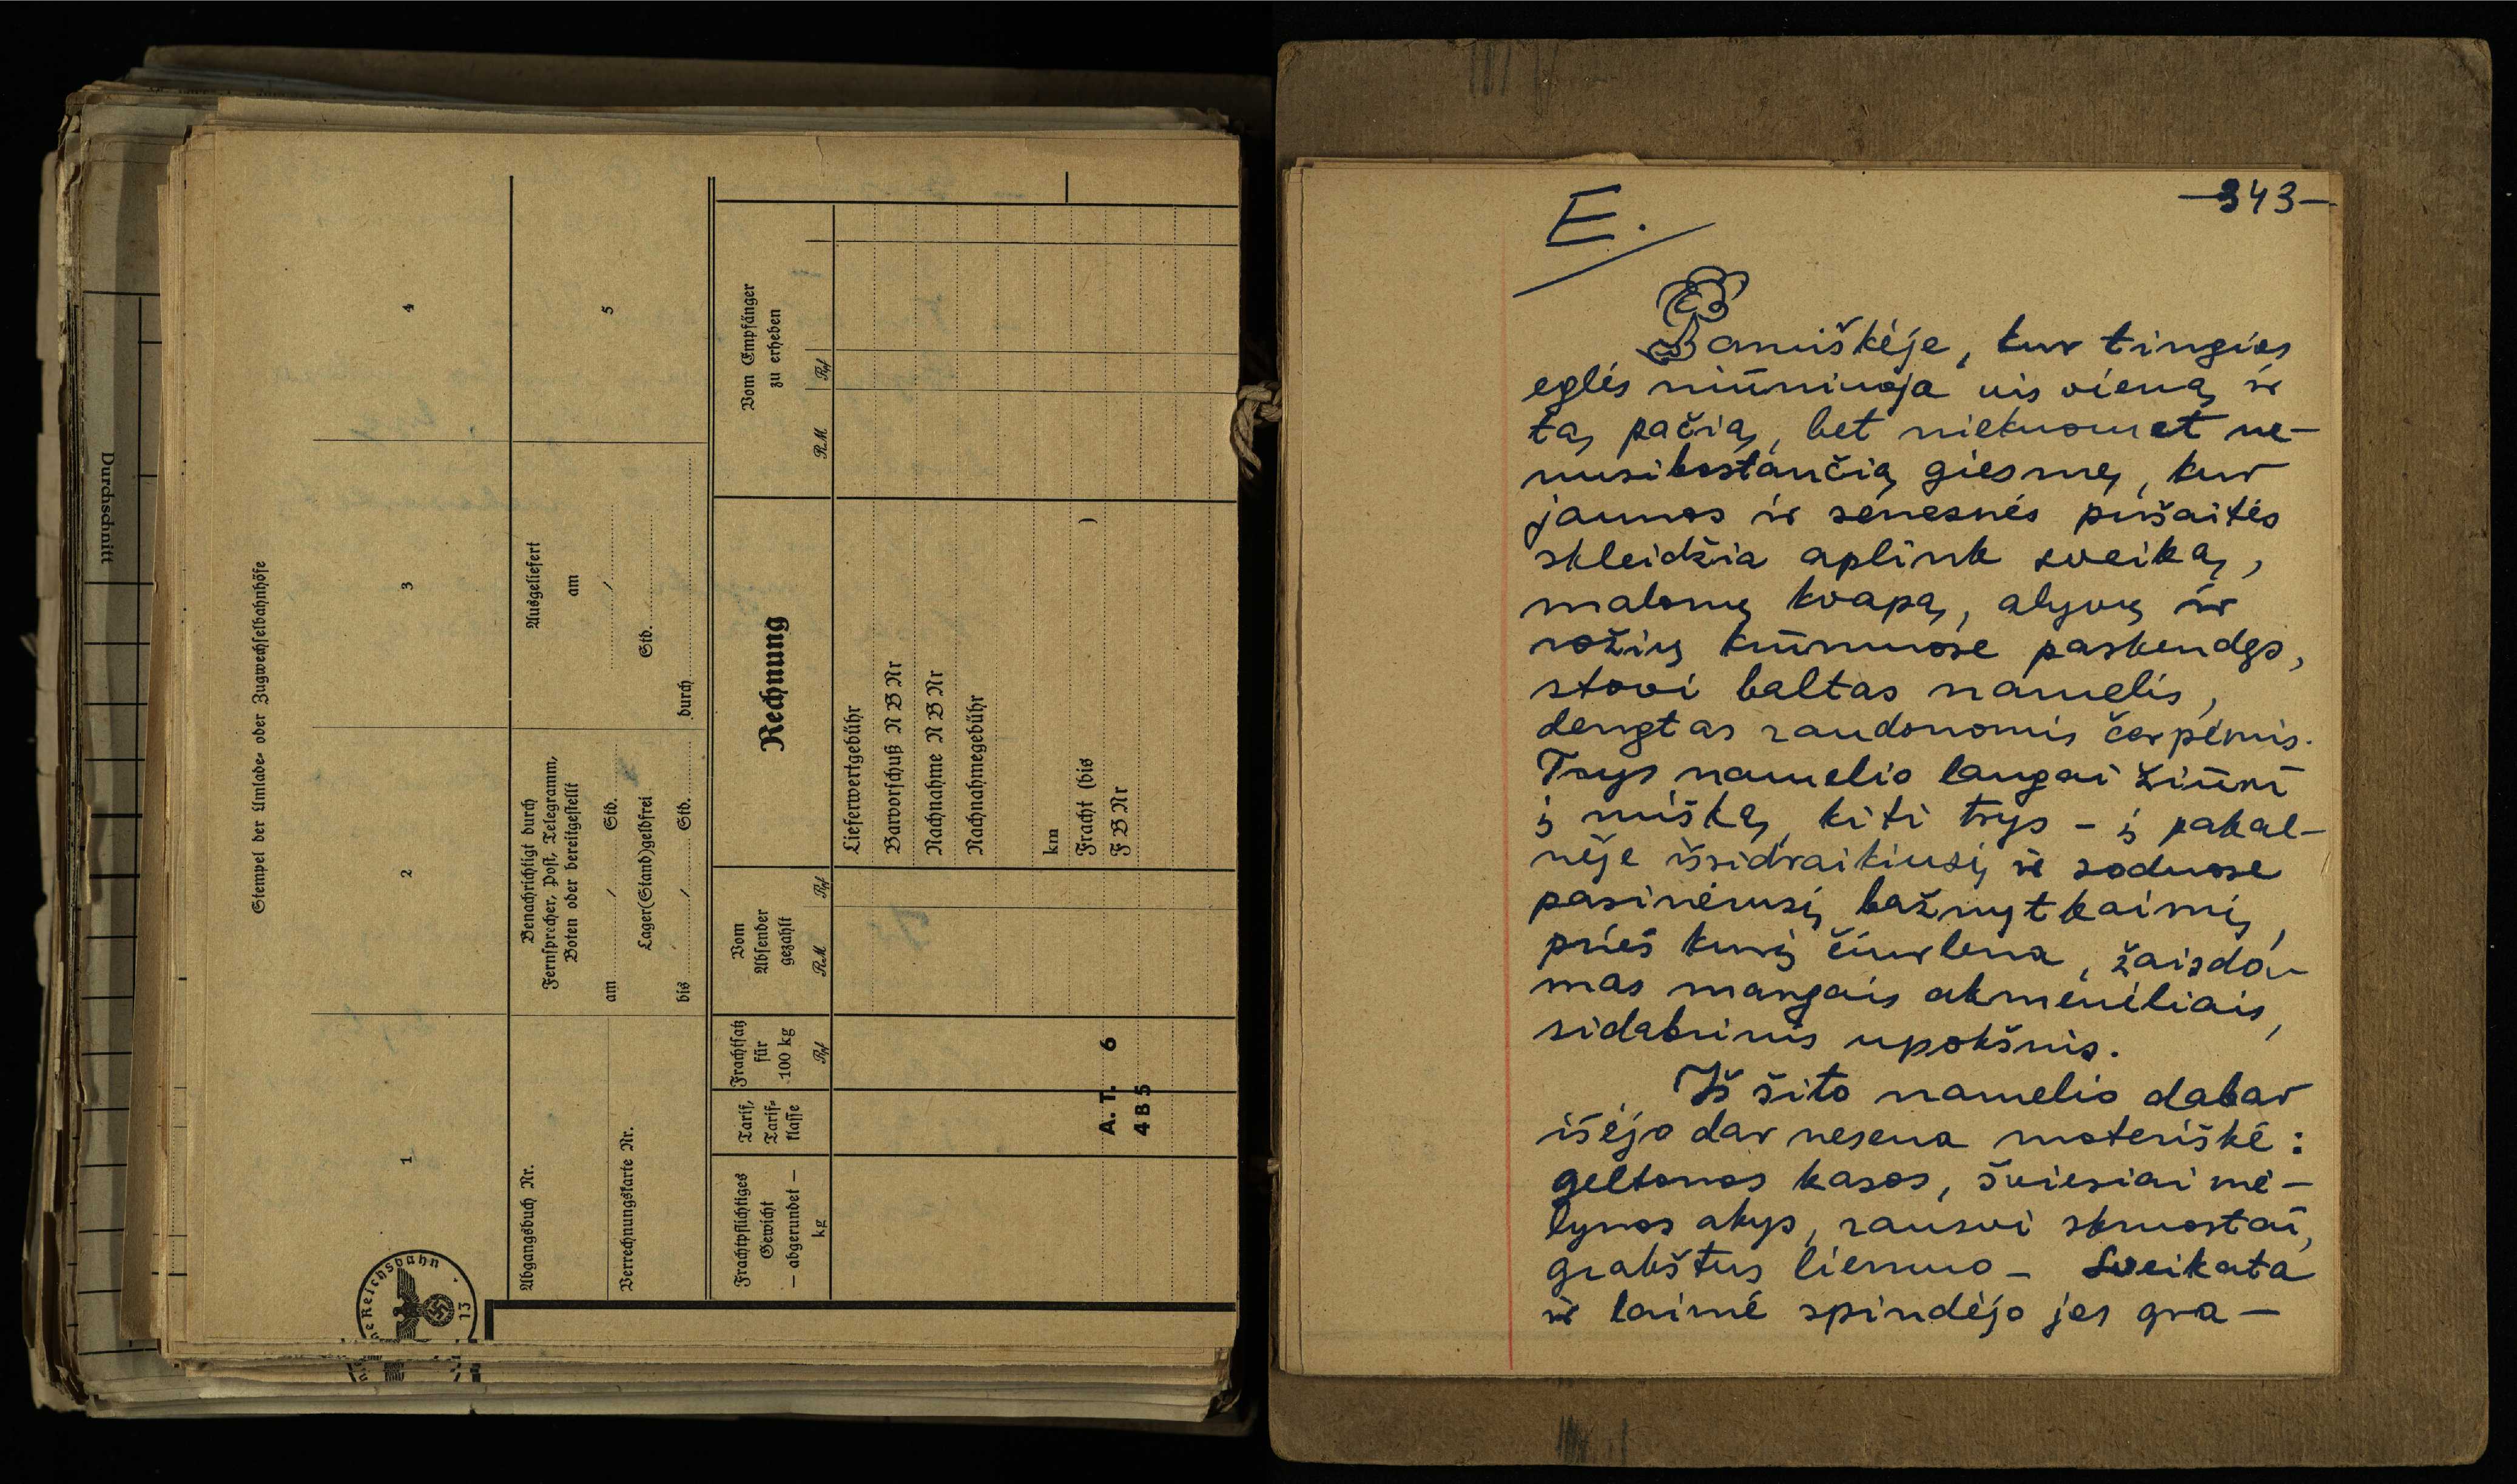 Durchschnitt
Stempel der Umlade- oder Zugwechselbahnhöfe
1
2
3
4
Abgangsbuch Nr.
Verrechnungskarte Nr.
Benachrichtigt durch
Fernsprecher, Post, Telegramm,
Boten oder bereitgestellt
am / Std.
Lager(Stand)geldfrei
bis / Std.
Ausgeliefert
am
/
Std.
durch
5
Frachtpflichtiges
Gewicht
— abgerundet —
kg
Tarif,
Tarif-
klasse
Frachtsatz
für
100 kg
Rpf
Vom
Absender
gezahlt
RM Rpf
Rechnung
Vom Empfänger
zu erheben
RM Rpf
Lieferwertgebühr
Barvorschuß N B Nr
Nachnahme N B Nr
Nachnahmegebühr
km
Fracht (bis )
F B Nr
A. T. 6
4 B 5
Reichsbahn
13
—343—
E.
Pamiškėje, kur tingios
eglės niūniuoja vis vieną ir
tą pačią, bet niekuomet ne-
nusibostančią giesmę, kur
jaunos ir senesnės pušaitės
skleidžia aplink sveiką,
malonų kvapą, alyvų ir
rožių krūmuose paskendęs,
stovi baltas namelis,
dengtas raudonomis čerpėmis.
Trys namelio langai žiūri
į mišką, kiti trys – į pakal-
nėje išsidraikiusį ir soduose
pasinėrusį bažnytkaimį,
prieš kurį čiurlena, žaisda-
mas margais akmenėliais,
sidabrinis upokšnis.
Iš šito namelio dabar
išėjo dar nesena moteriškė:
geltonos kasos, šviesiai mė-
lynos akys, rausvi skruostai,
grakštus liemuo – Sveikata
ir laimė spindėjo jos gra-